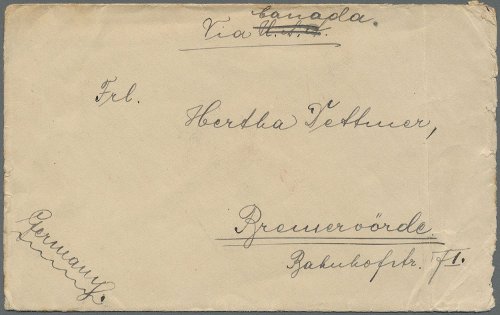 Canada.
Via U.S.A.
Frl.
Hertha Tettmer,
Bremervörde.
Bahnhofstr. 71.
Germany.